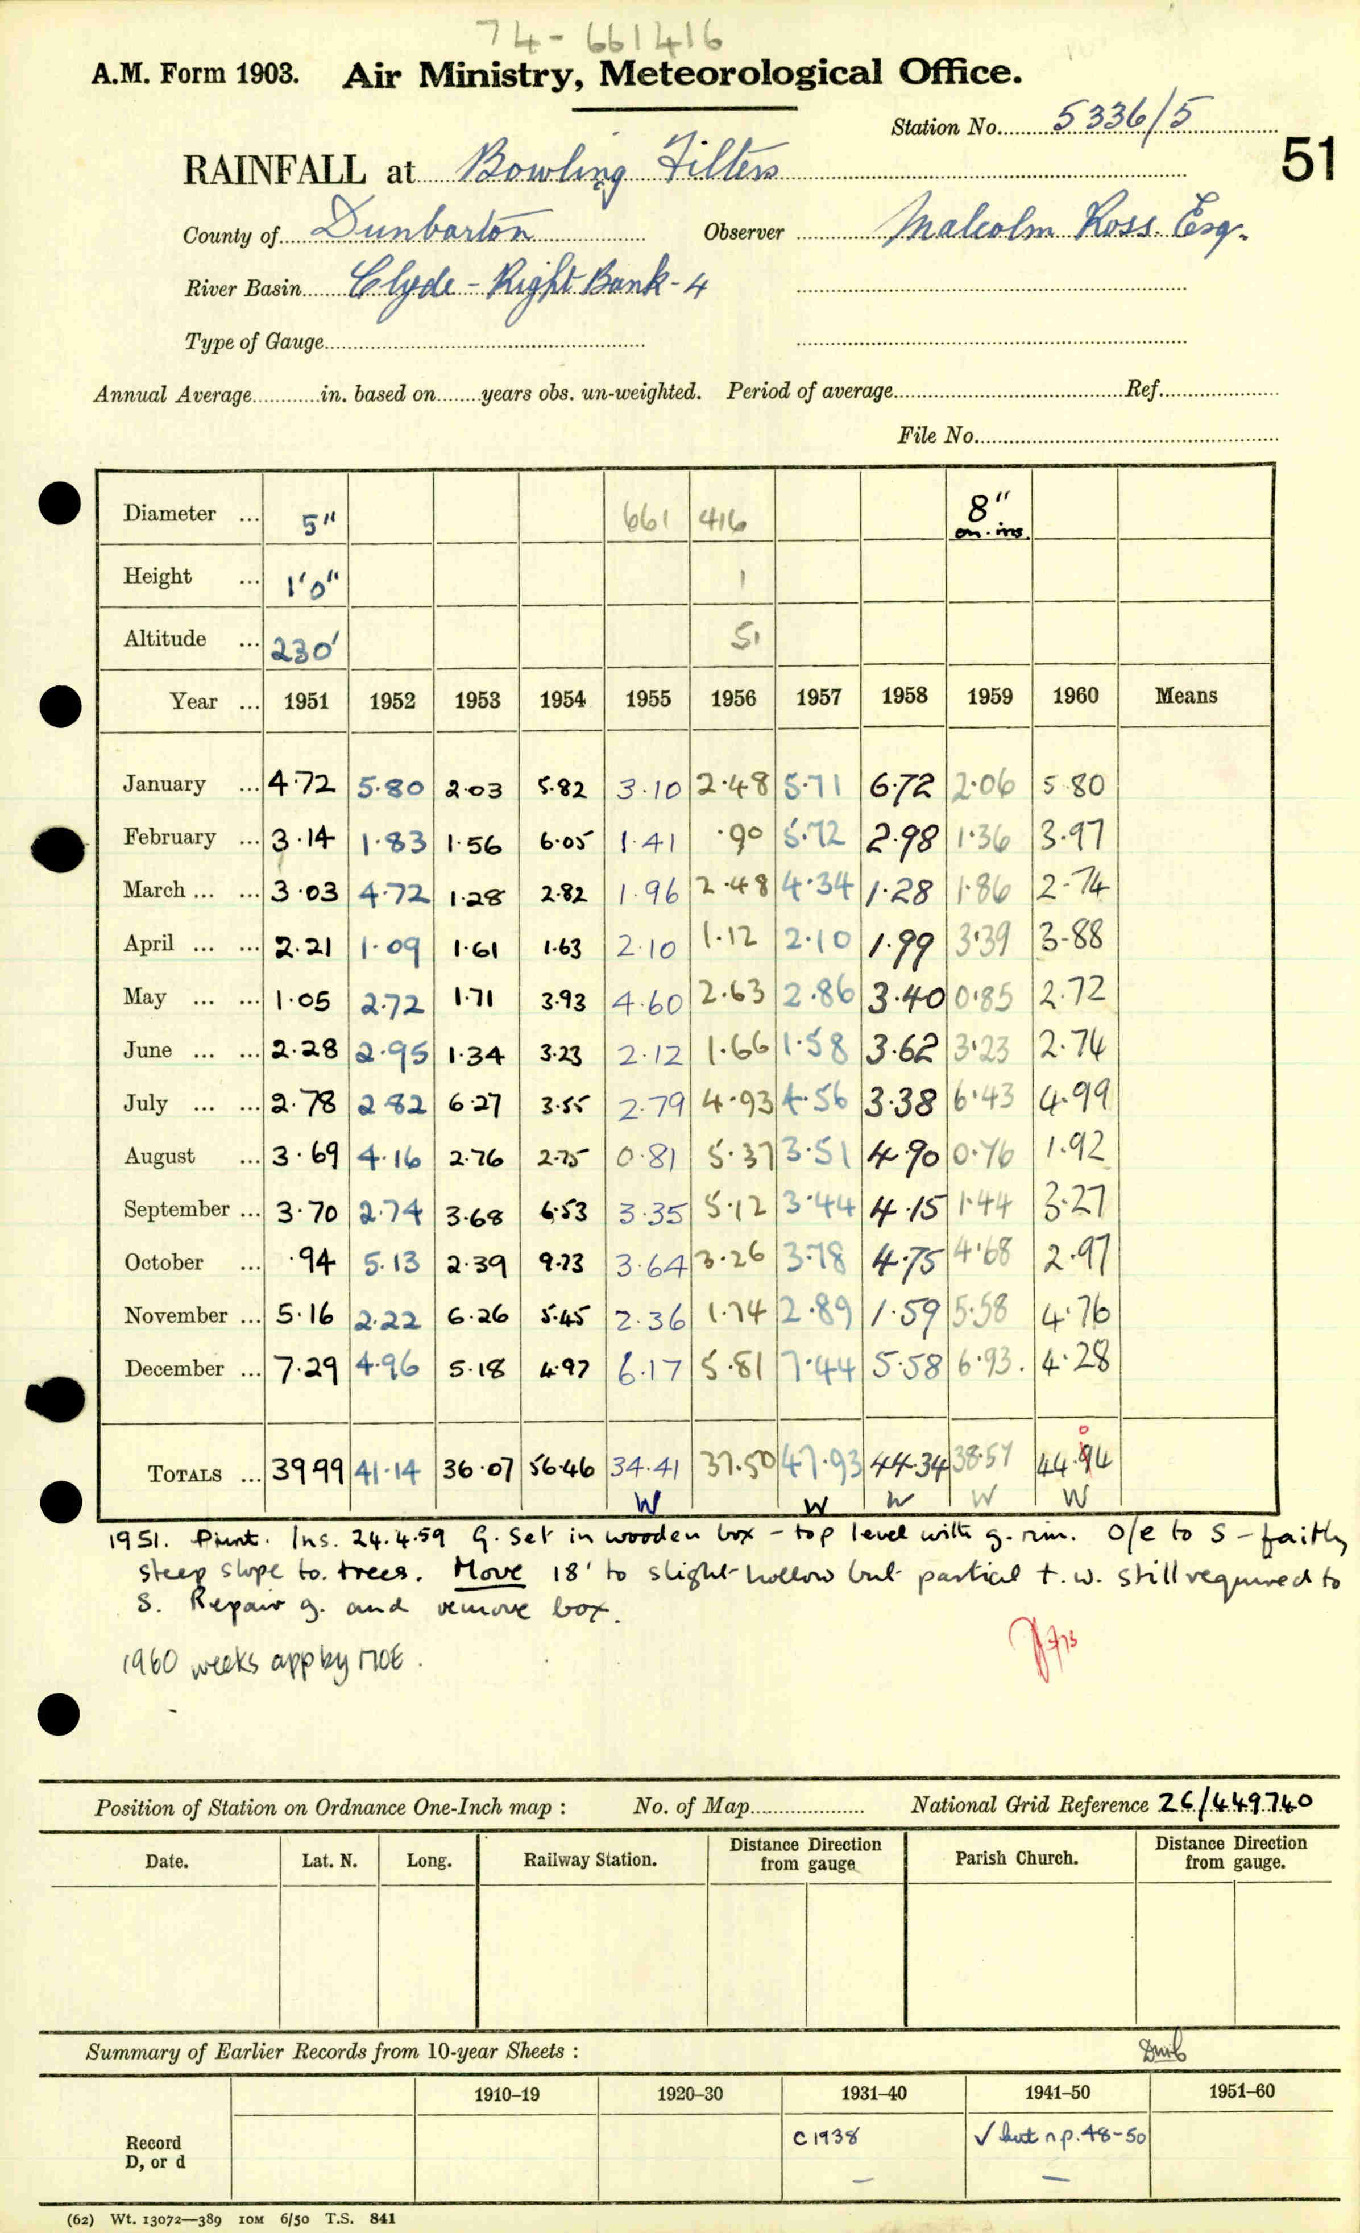 74-661416
A.M. Form 1903. Air Ministry, Meteorological Office.
Station No. 5336/5
51
RAINFALL at Bowling Filters
County of Dunbarton Observer Malcolm Ross Esq.
River Basin Clyde - Right Bank - 4
Type of Gauge
Annual Average in. based on years obs. un-weighted. Period of average Ref.
File No.
Diameter ... 5" 661 416 8"
on. ins.
Height ... 1'0" 1
Altitude ... 230' 51
Year ... 1951 1952 1953 1954 1955 1956 1957 1958 1959 1960 Means
January ... 4.72 5.80 2.03 5.82 3.10 2.48 5.71 6.72 2.06 5.80
February ... 3.14 1.83 1.56 6.05 1.41 .90 5.72 2.98 1.36 3.97
March ... ... 3.03 4.72 1.28 2.82 1.96 2.48 4.34 1.28 1.86 2.74
April ... ... 2.21 1.09 1.61 1.63 2.10 1.12 2.10 1.99 3.39 3.88
May ... ... 1.05 2.72 1.71 3.93 4.60 2.63 2.86 3.40 0.85 2.72
June ... ... 2.28 2.95 1.34 3.23 2.12 1.66 1.58 3.62 3.23 2.74
July ... ... 2.78 2.82 6.27 3.55 2.79 4.93 4.56 3.38 6.43 4.99
August ... 3.69 4.16 2.76 2.75 0.81 5.37 3.51 4.90 0.76 1.92
September ... 3.70 2.74 3.68 6.53 3.35 5.12 3.44 4.15 1.44 3.27
October ... .94 5.13 2.39 9.73 3.64 3.26 3.78 4.75 4.68 2.97
November ... 5.16 2.22 6.26 5.45 2.36 1.74 2.89 1.59 5.58 4.76
December ... 7.29 4.96 5.18 4.97 6.17 5.81 7.44 5.58 6.93. 4.28
0
TOTALS ... 39.99 41.14 36.07 56.46 34.41 37.50 47.93 44.34 38.57 44.94
W W W W W
1951. Ins. 24.4.59 G. Set in wooden box - top level with g. rim. O/e to S - fairly
steep slope to trees. Move 18' to slight hollow but partial t.w. still required to
S. Repair g. and remove box.
1960 weeks app by MOE.
Position of Station on Ordnance One-Inch map : No. of Map National Grid Reference 26/449740
Date. Lat. N. Long. Railway Station. Distance Direction from gauge Parish Church. Distance Direction from gauge.
Summary of Earlier Records from 10-year Sheets :
1910–19 1920–30 1931–40 1941–50 1951–60
Record C 1938 ✓ but n.p. 48-50
D, or d – –
(62) Wt. 13072—389 10M 6/50 T.S. 841